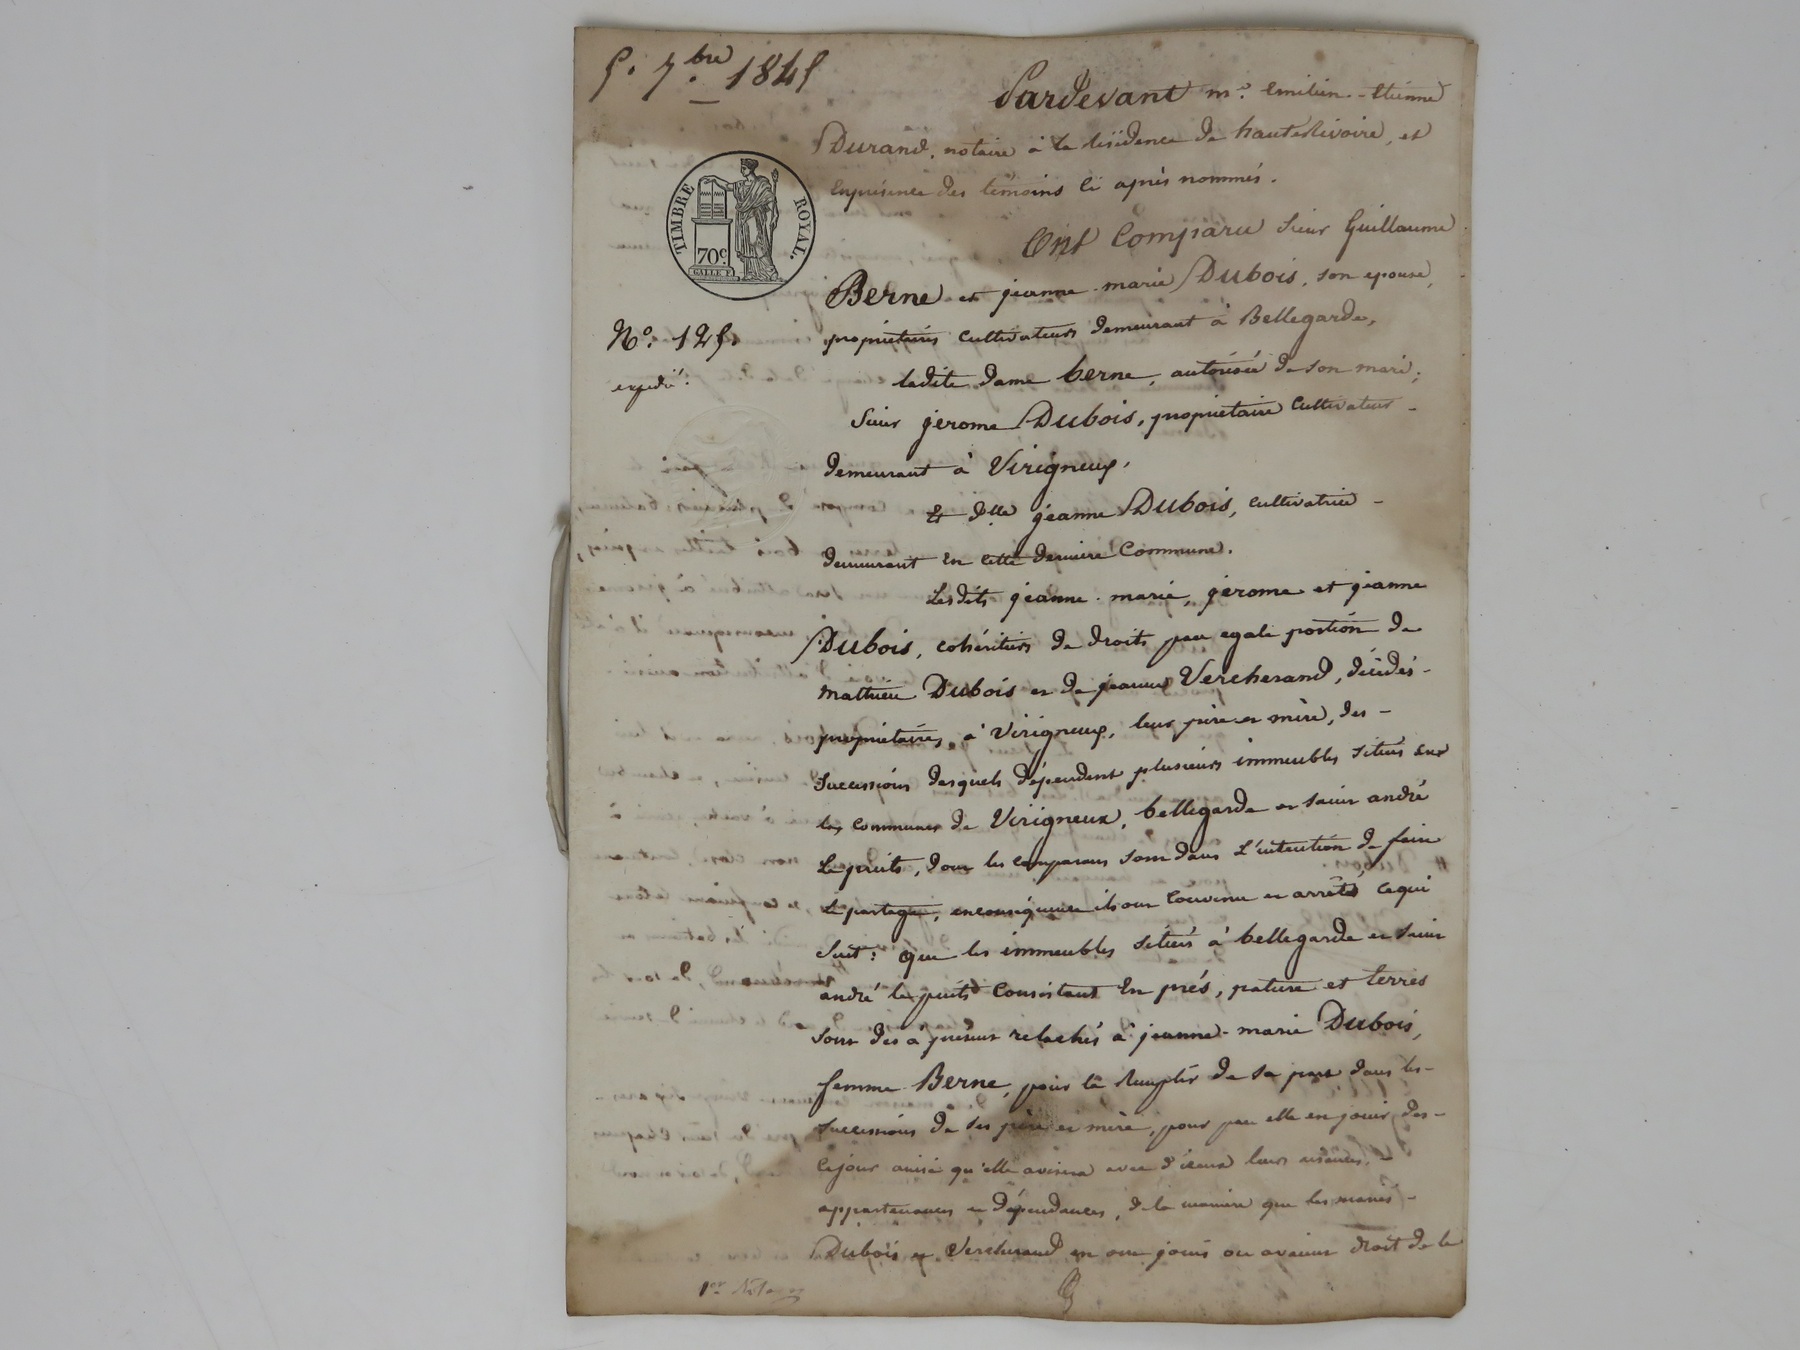 5. 7bre 1845
Pardevant me. Emilien-Etienne
Durand, notaire à la résidence de hauterivoire, et
en présence des témoins ci après nommés.
Ont Comparu Sieur Guillaume
Berne et jeanne-marie Dubois, son epouse,
propriétaires cultivateurs demeurant à Bellegarde,
ladite dame berne, autorisée de son mari;
Sieur jerome Dubois, propriétaire Cultivateur-
demeurant à Virigneux,
Et dlle jeanne Dubois, cultivatrice-
demeurant en cette dernière Commune.
Lesdits jeanne-marie, jerome et jeanne
Dubois, cohéritiers de droits par egale portion de
mathieu Dubois et de jeanne Vercherand, décédés-
propriétaires à Virigneux, leur père et mère, des-
successions desquels dépendent plusieurs immeubles situés sur
les communes de Virigneux, bellegarde et saint andré
Le puits, dont les comparans sont dans L'intention de faire
Le partage, en conséquence ils ont Convenu et arrêté cequi
Suit: que les immeubles situés à bellegarde et saint
andré le puits Consistant En prés, pature et terres
sont des à présent relachés à jeanne-marie Dubois,
femme Berne, pour la remplir de sa part dans les-
successions de ses père et mère, pour par elle en jouir des-
cejour ainsi qu'elle avisera avec d'iceux leurs aisances,-
appartenances et dépendances, de la manière que les mariés-
Dubois et Vercherand en ont joui ou avaient droit de le
TIMBRE ROYAL.
70c.
N°. 125.
expédié.
1er